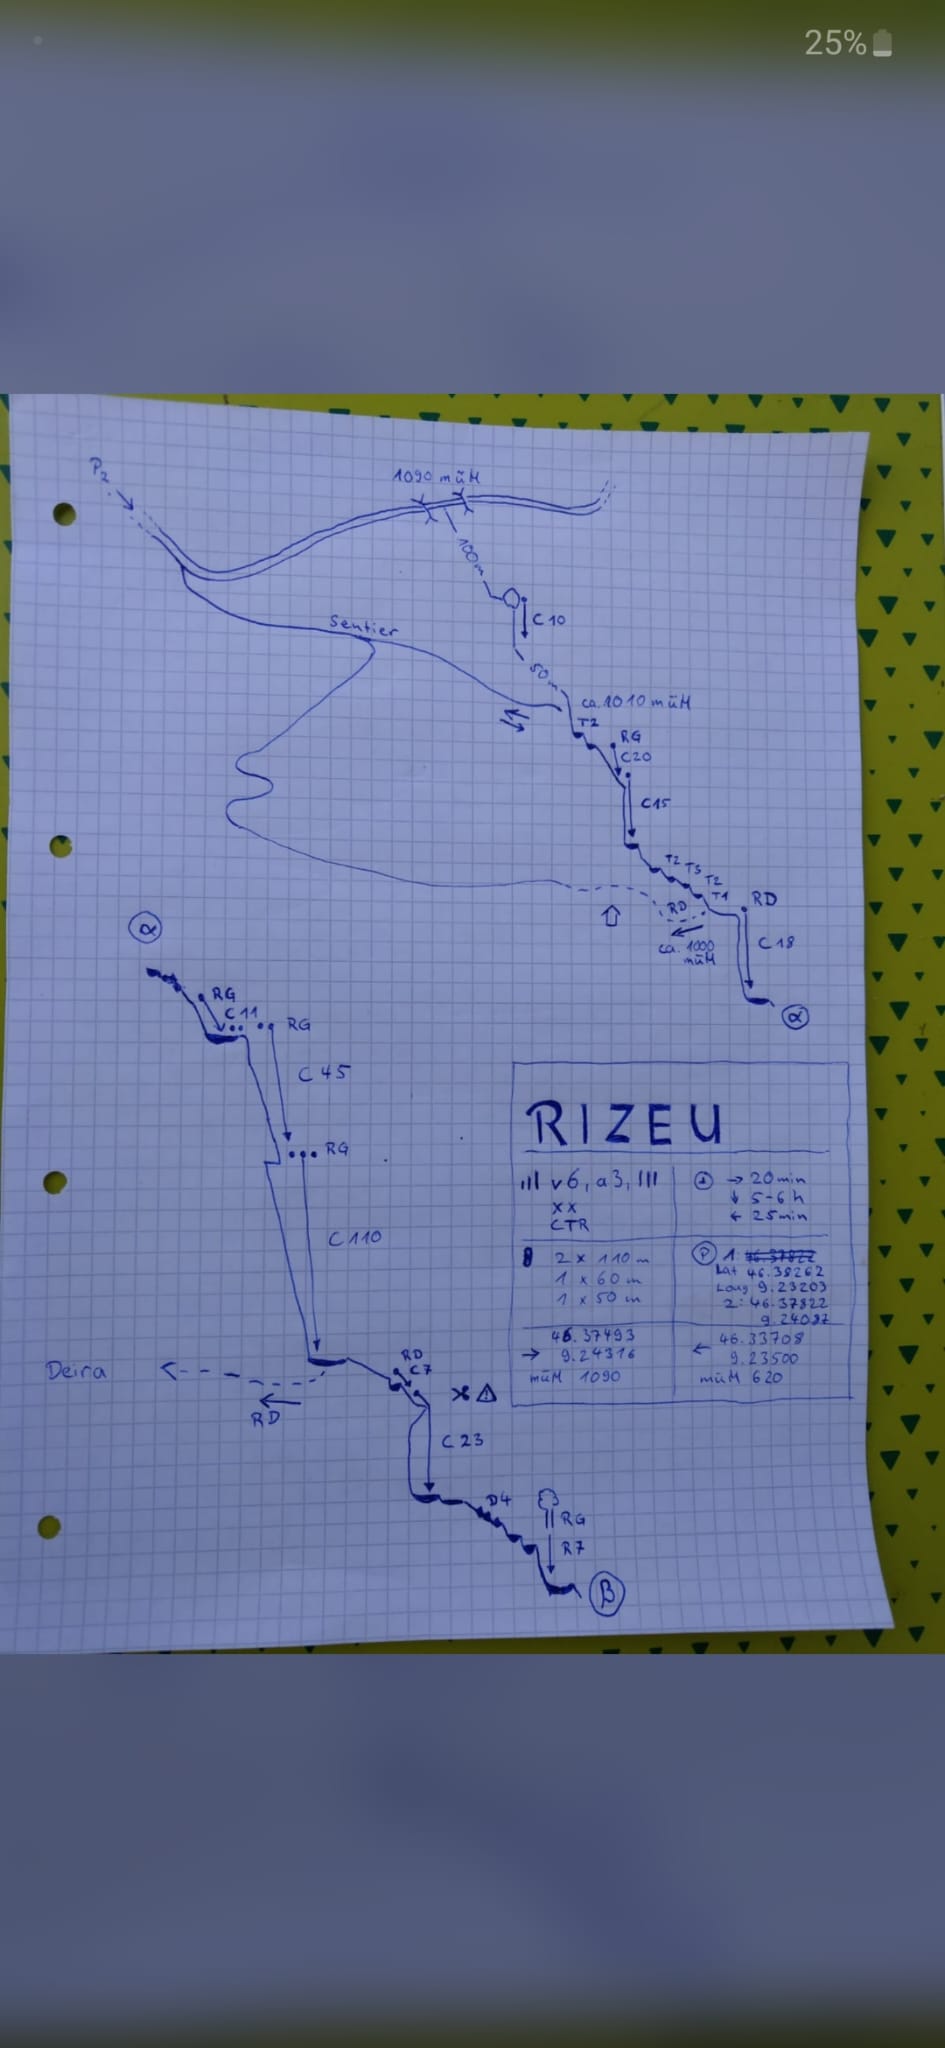 25%
P2
1090 müM
100m
C10
Sentier
50m
ca. 1010 müM
T2
RG
C20
C15
T2 T3 T2 T1
RD
RD
C18
ca. 1000
müM
α
α
RG
C11
RG
C 45
RG
C 110
RD
C7
Deira
RD
C 23
D4
RG
R7
B
RIZEU
v6, a3, III
xx
CTR
→ 20min
↓ 5-6h
← 25min
2 x 110 m
1 x 60 m
1 x 50 m
P 1:
Lat 46.38262
Long 9.23203
2: 46.37822
9.24087
46.37493
→ 9.24316
müM 1090
46.33708
← 9.23500
müM 620